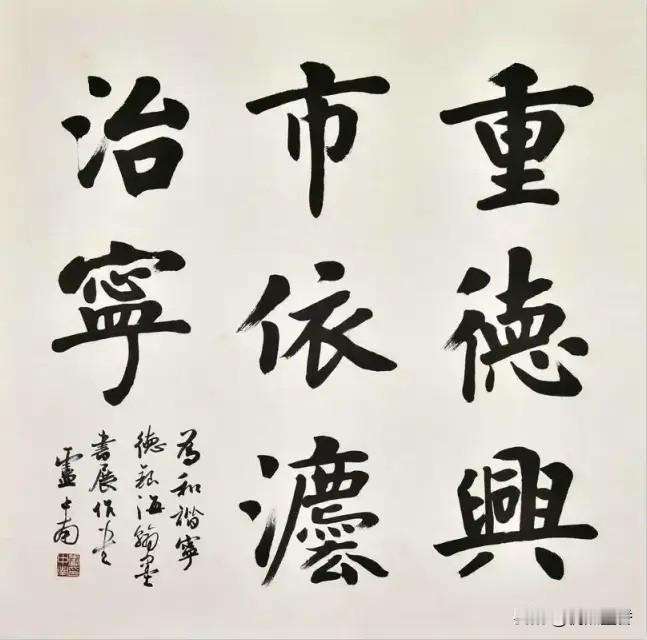 重德興
市依灋
治寧
為和諧寧
德海翰墨
書展作書
盧中南